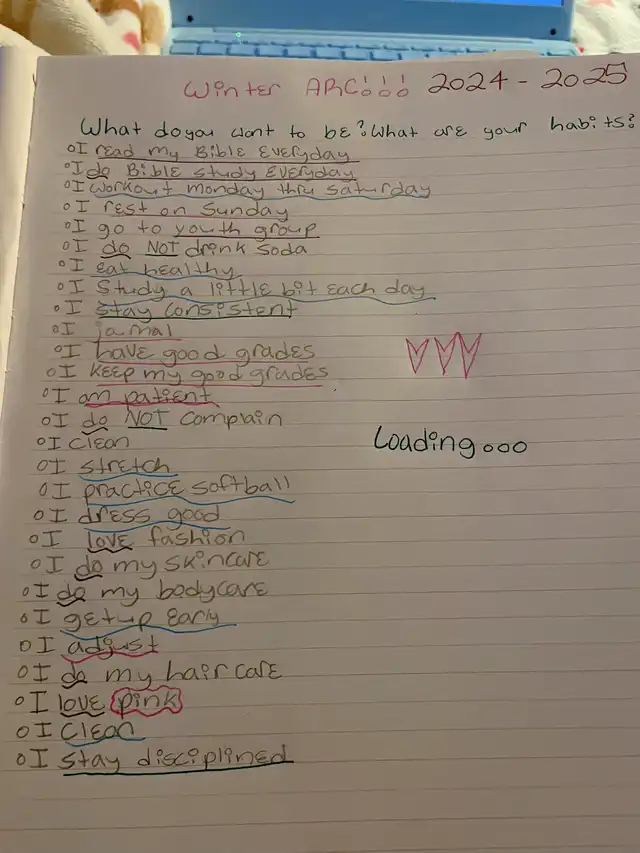 Winter ARC!!! 2024 - 2025
What do you want to be? What are your habits?
I read my Bible Everyday
I do Bible study Everyday
I workout monday thru saturday
I rest on Sunday
I go to youth group
I do NOT drink soda
I eat healthy
I study a little bit each day
I stay consistent
I jornal
I have good grades
I keep my good grades
I am patient
I do NOT complain
I clean
I stretch
I practice softball
I dress good
I love fashion
I do my skincare
I do my bodycare
I get up early
I adjust
I do my hair care
I love pink
I clean
I stay disciplined
Loading...